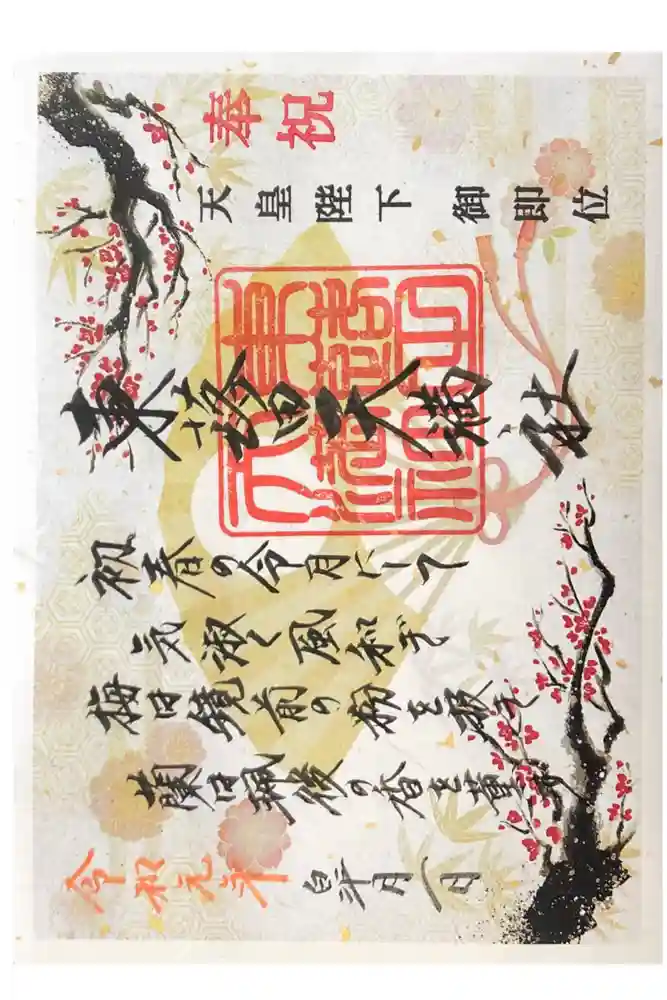 奉祝
天皇陛下 御即位
天満社
初春の令月にして
気淑く風和ぎ
梅は鏡前の粉を披き
蘭は珮後の香を薫す
令和元年 皐月一日